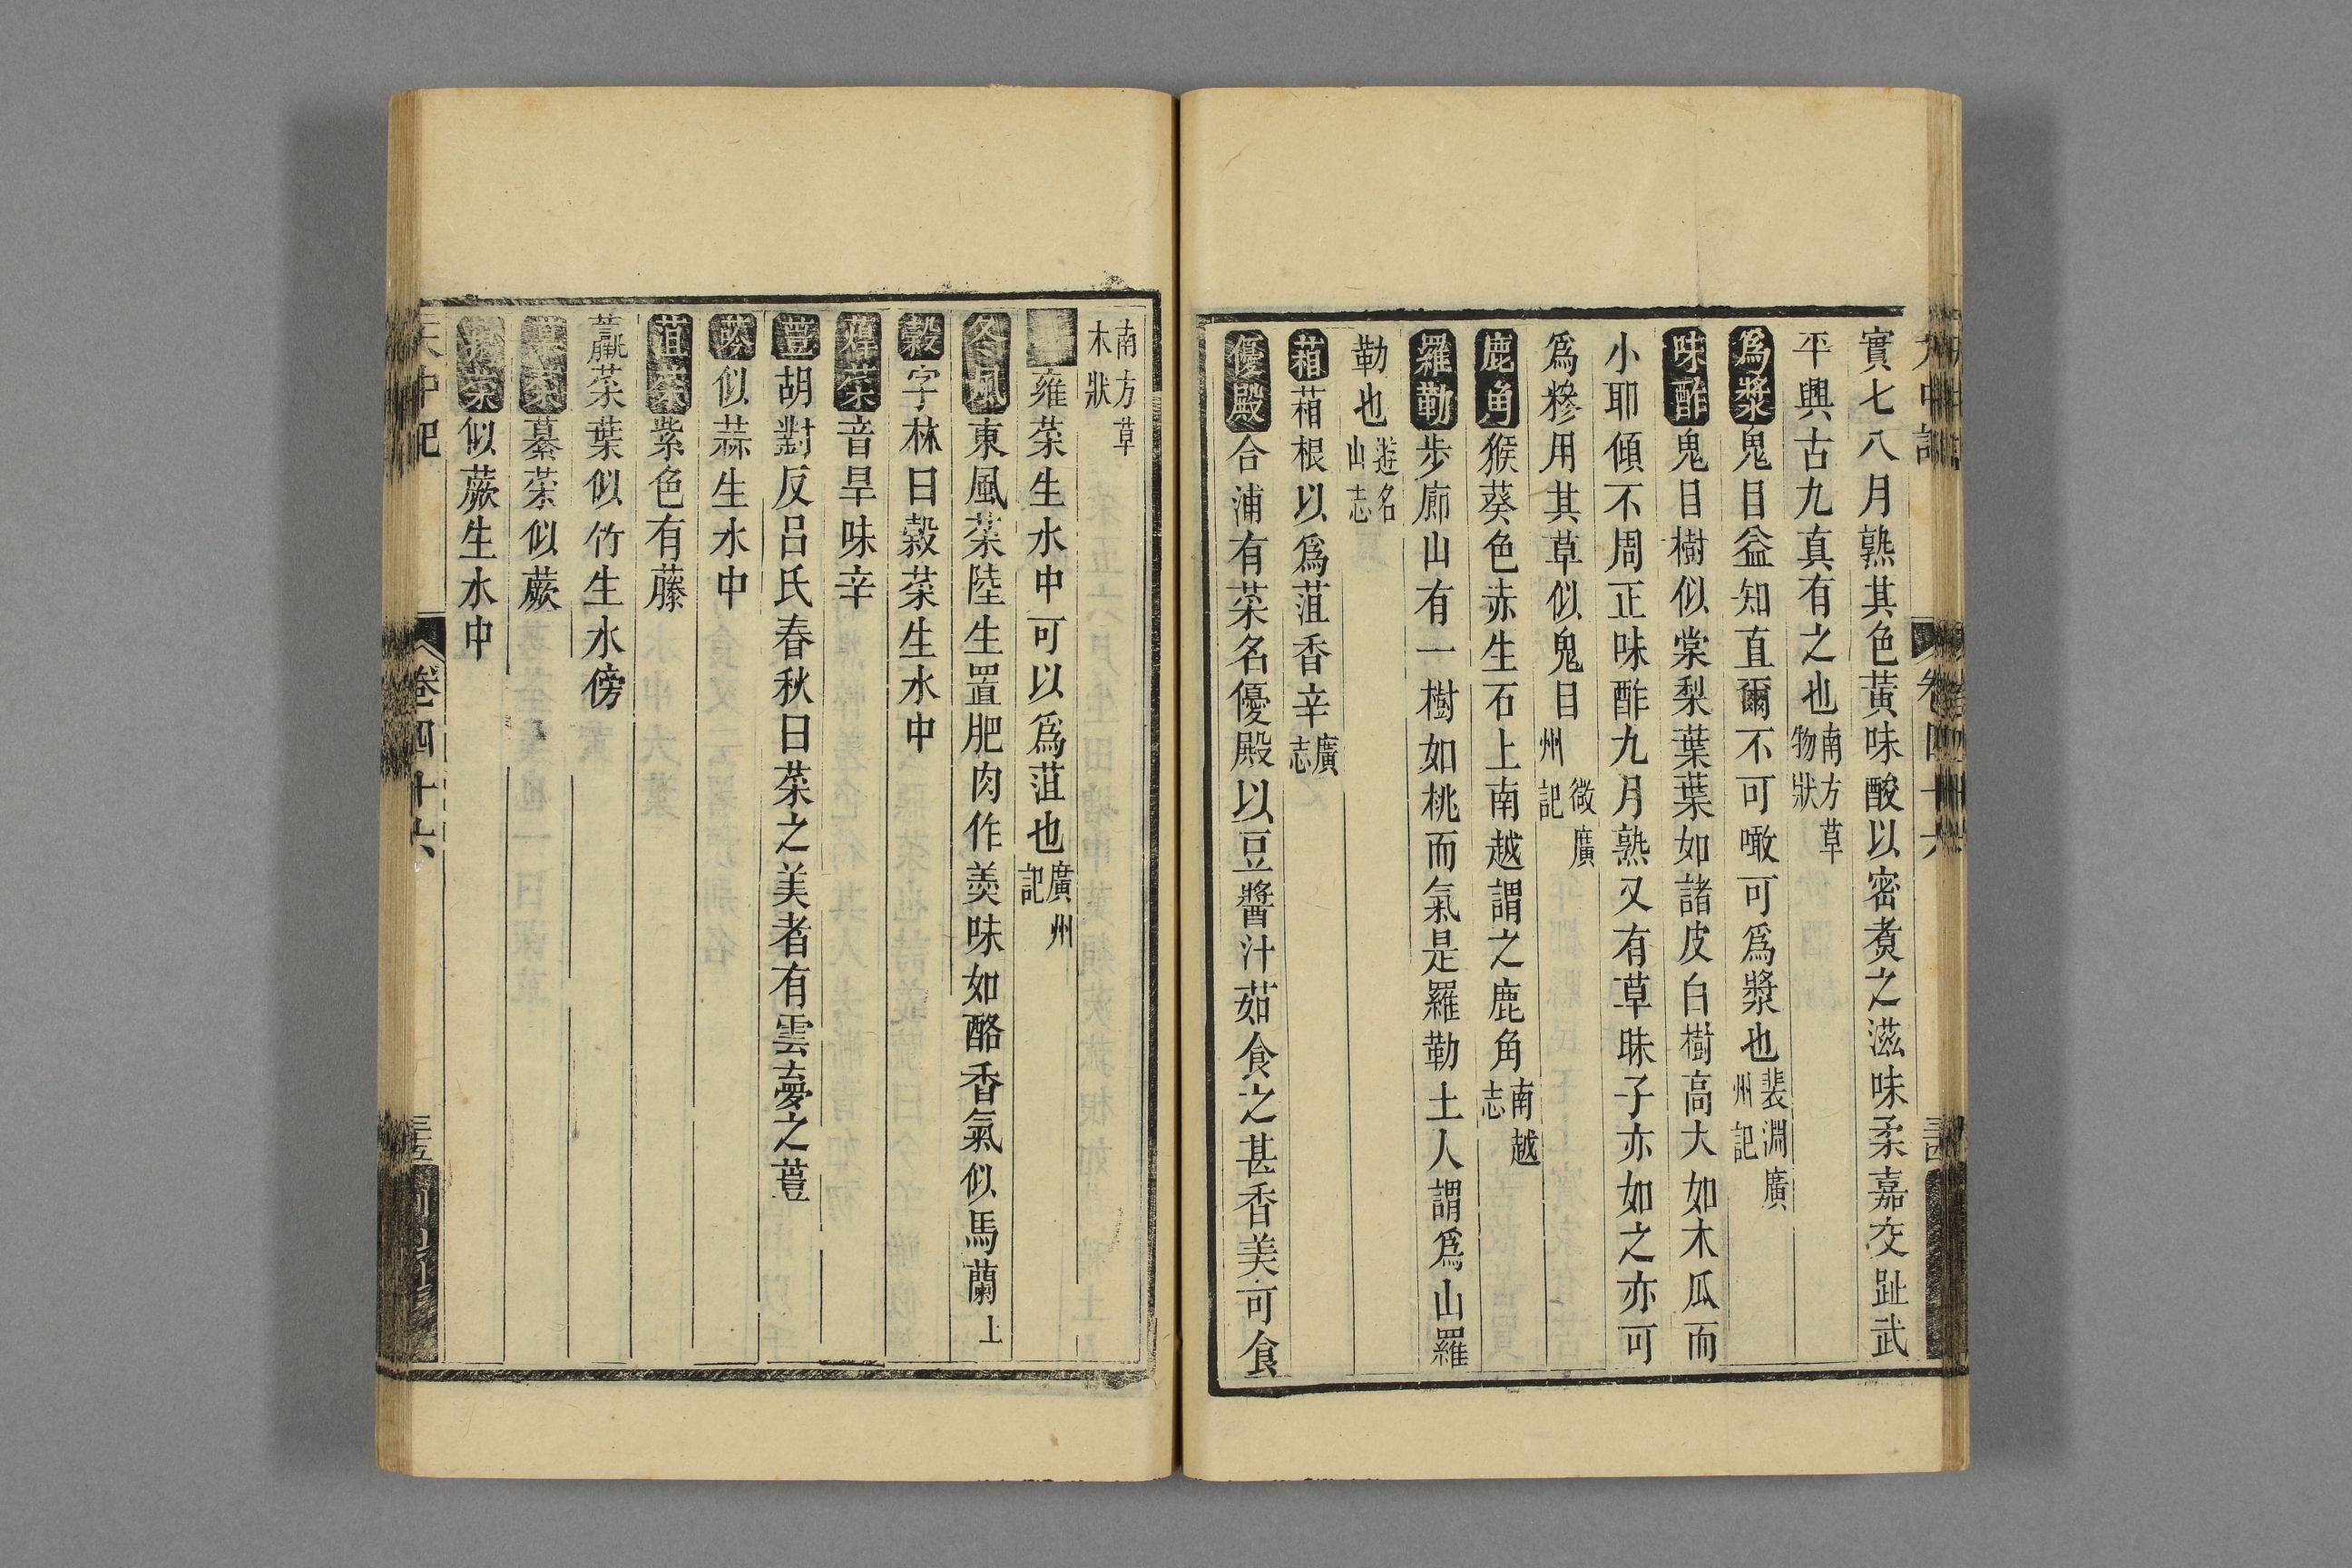 實七八月熟其色黃味酸以密煑之滋味柔嘉交趾武
平興古九真有之也南方草物狀
爲漿鬼目益知直爾不可噉可爲漿也裴淵廣州記
味酢鬼目樹似棠梨葉葉如諸皮白樹高大如木瓜而
小耶傾不周正味酢九月熟又有草昧子亦如之亦可
爲糝用其草似鬼目微廣州記
鹿角猴葵色赤生石上南越謂之鹿角南越志
羅勒步廊山有一樹如桃而氣是羅勒土人謂爲山羅
勒也遊名山志
葙葙根以爲菹香辛廣志
優殿合浦有菜名優殿以豆醬汁茹食之甚香美可食
南方草木狀
雍菜生水中可以爲菹也廣州記
冬風東風菜陸生置肥肉作羮味如酪香氣似馬蘭上
糓字林曰糓菜生水中
菜音旱味辛
荳胡對反呂氏春秋曰菜之美者有雲夢之荳
菍似蒜生水中
菹菜紫色有藤
菜葉似竹生水傍
菜綦菜似蕨
菜似蕨生水中
天中記
卷四十六